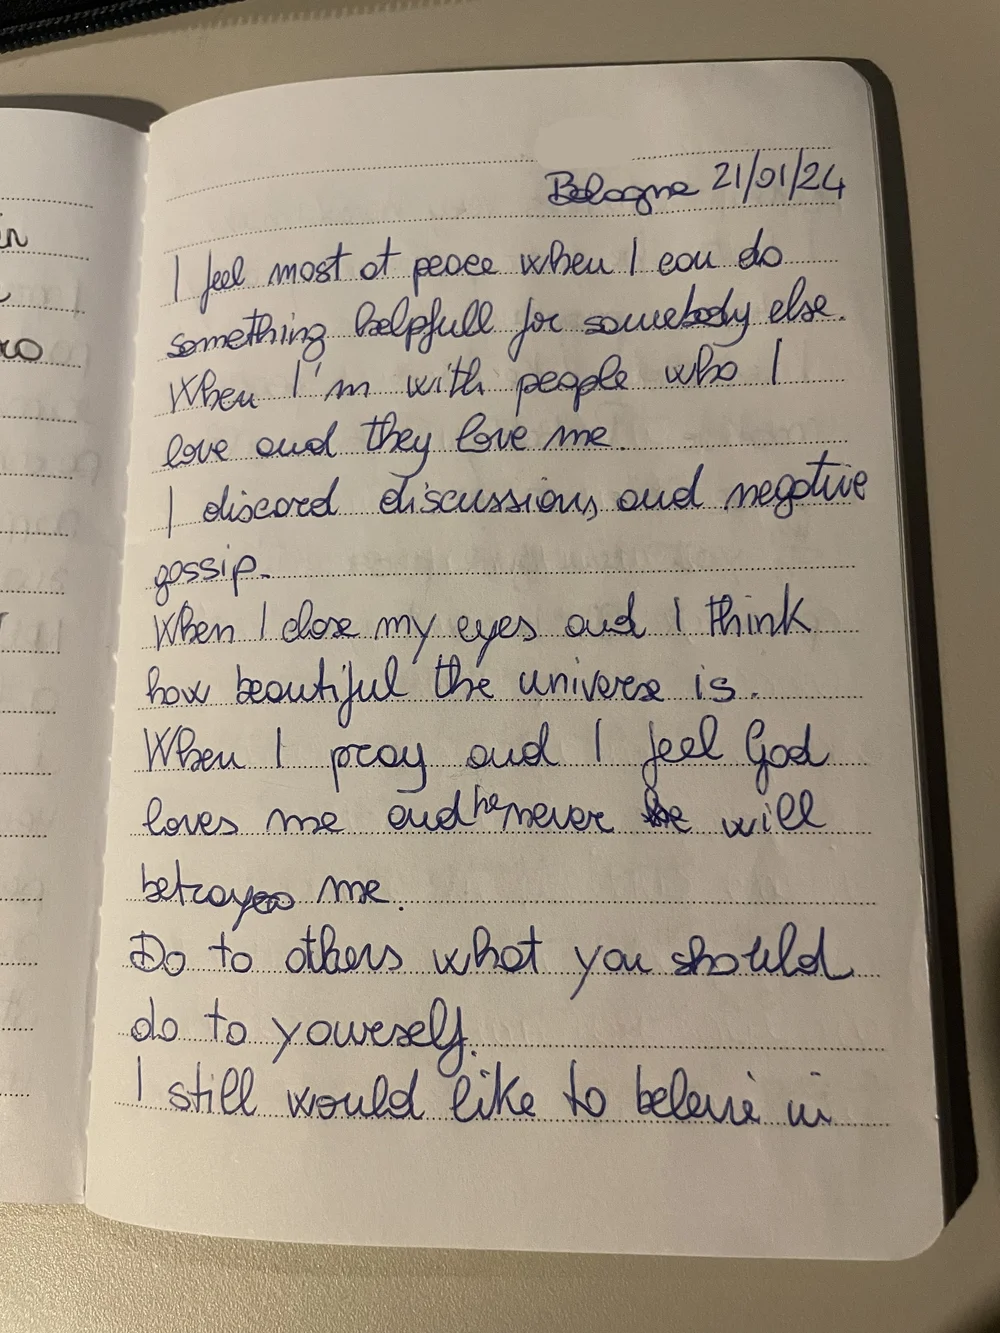 Bologna 21/01/24
I feel most at peace when I can do
something helpfull for somebody else.
When I'm with people who I
love and they love me.
I discard discussions, and negative
gossip.
When I close my eyes and I think
how beautiful the universe is.
When I pray and I feel God
loves me and he never will
betray me.
Do to others what you should
do to yourself.
I still would like to beleve in